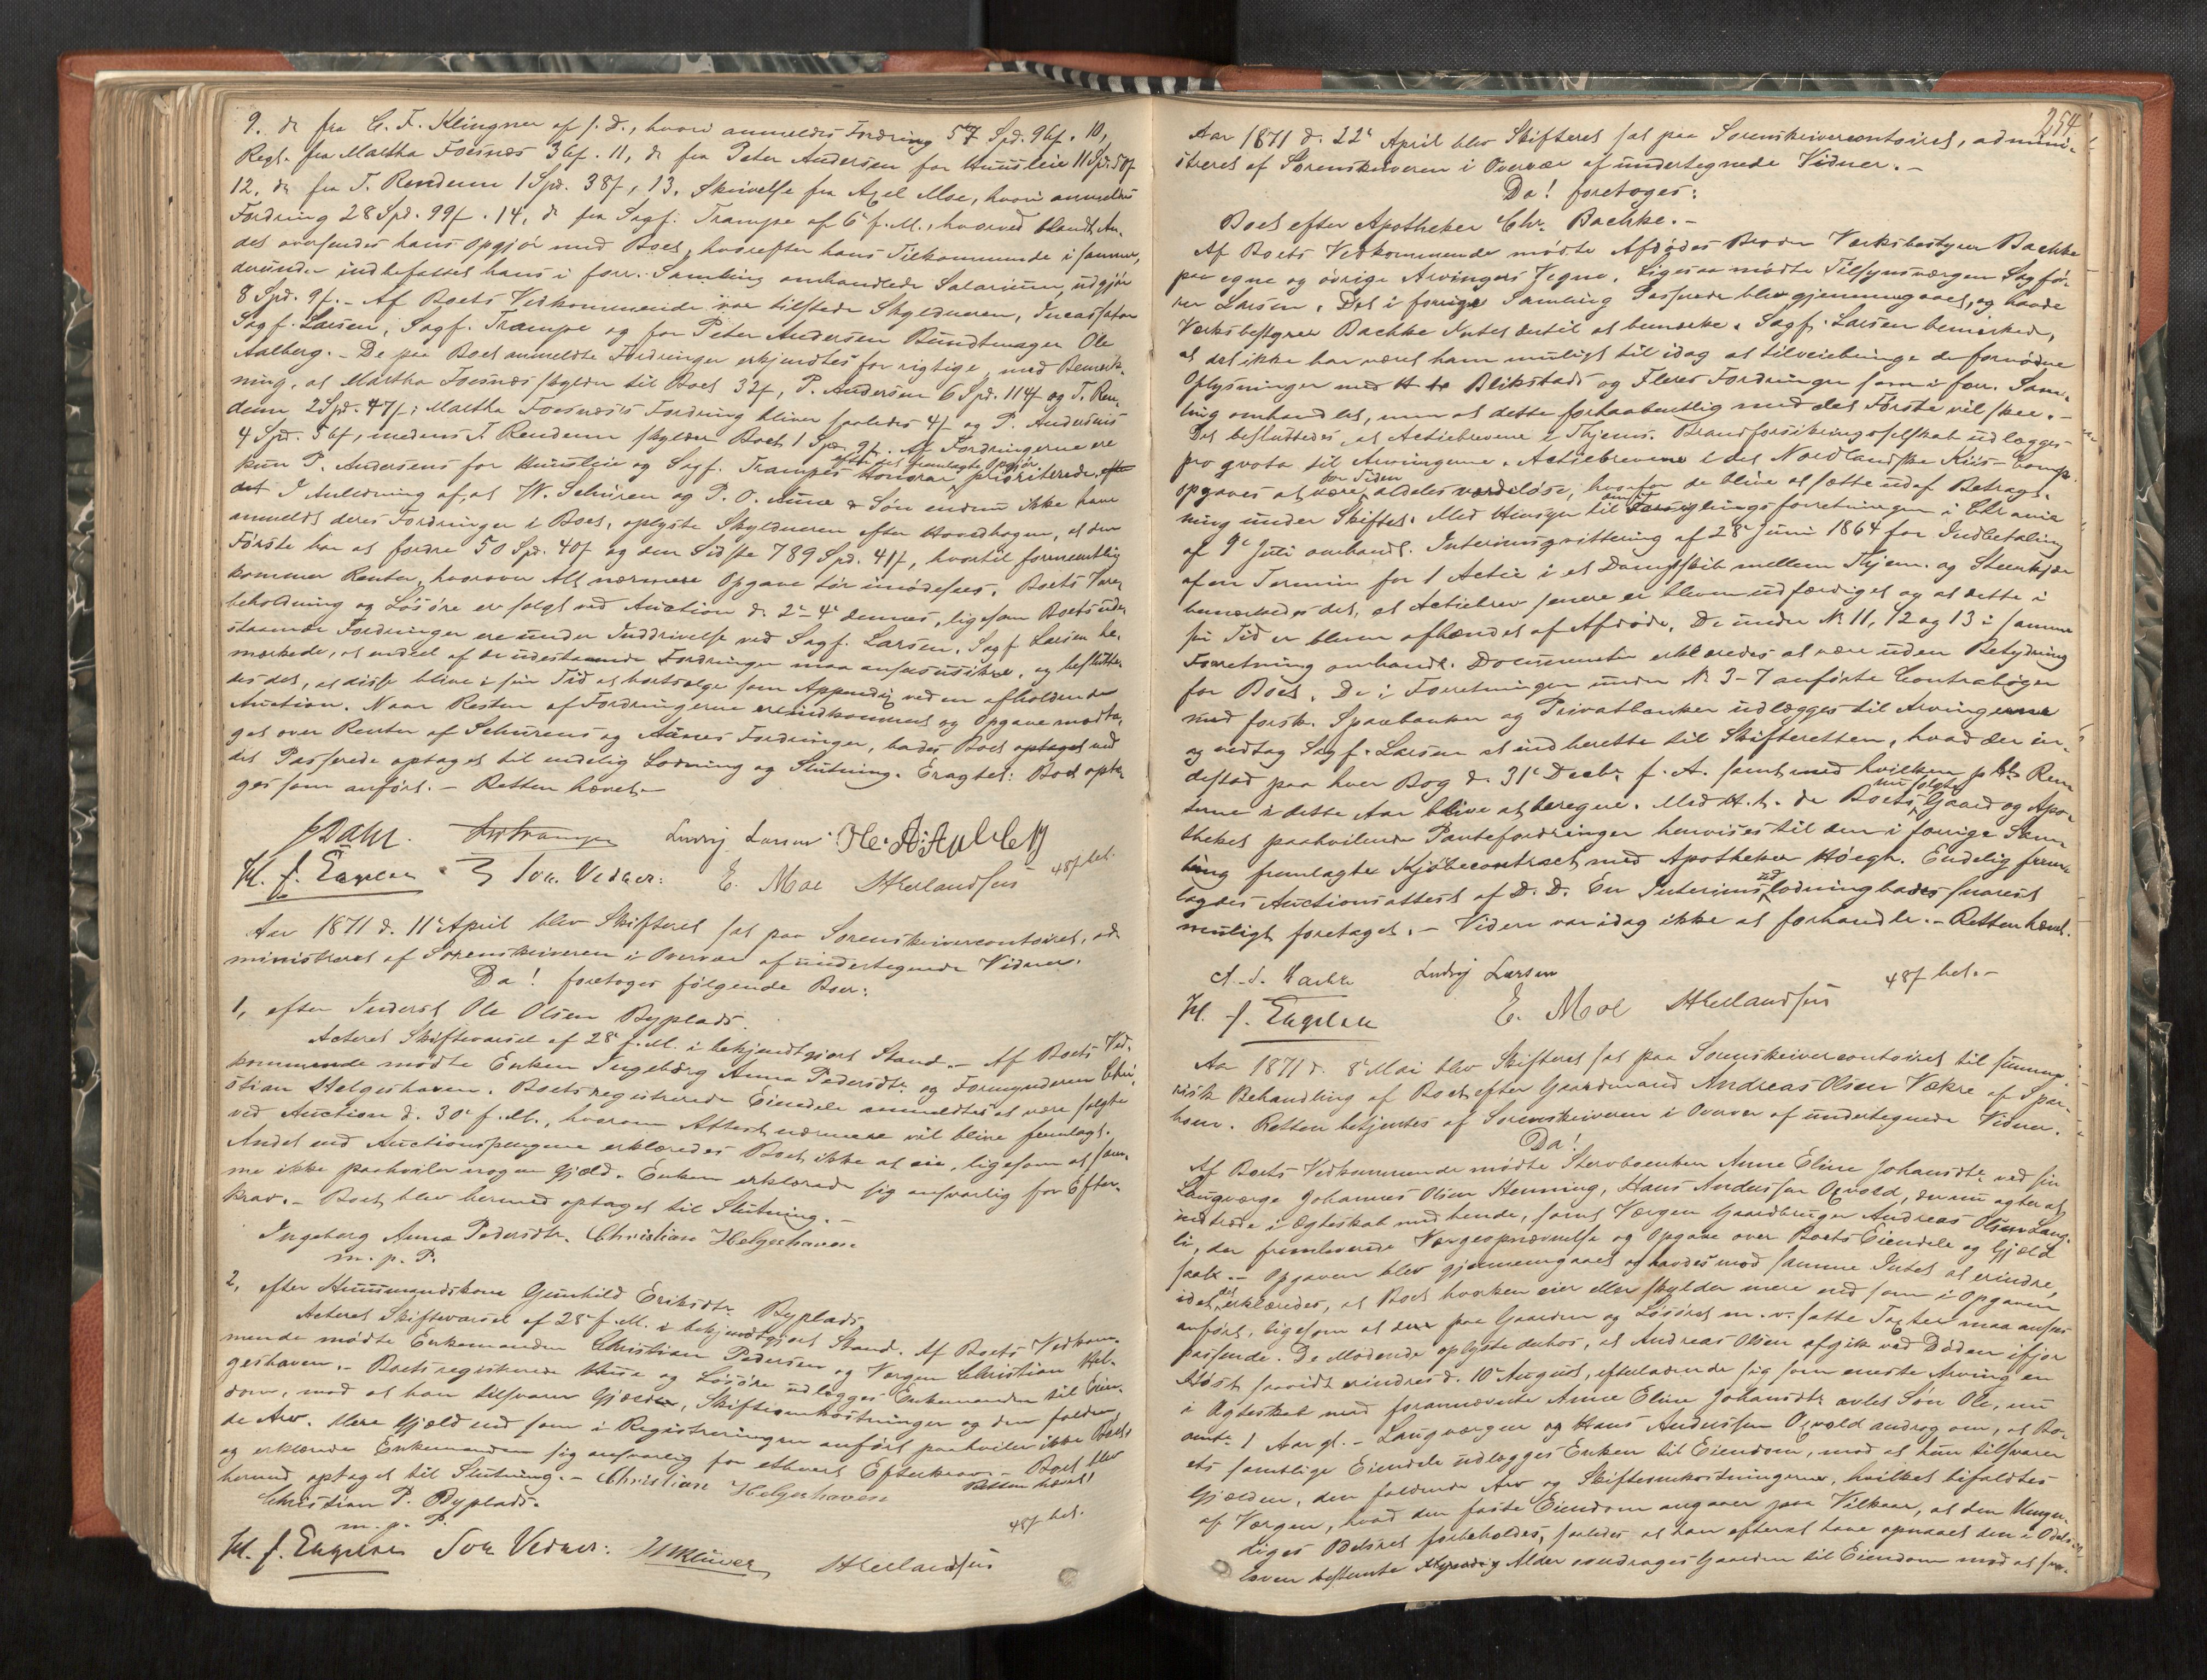 9. dr fra C. F. Klingner af s. D., hvori anmeldes Fordring 57 Spd. 96 s. 10,
Regl. fra Martha Foesnæs 36 s. 11, dr fra Peter Andersen for Huusleie 11 Spd.
12. dr fra T. Rendum 1 Spd. 38 s, 13. Skrivelse fra Axel Moe, hvori anmeldes
Fordring 28 Spd. 99 s. 14, dr fra Sagf. Trampe af 6te f. M., hvorved blandt An-
det oversendes hans Opgjør med Boet, hvorefter hans Tilkommende i samme,
derunder indbefattet hans i forr. Samling omhandlede Salarium, udgjør
8 Spd. 9 s. - Af Boets Vedkommende var tilstede Skyldneren, Incassator
Sagf. Larsen, Sagf. Trampe og for Peter Andersen Bundtmager Ole
Aalberg. - De paa Boet anmeldte Fordringer erkjendtes for rigtige, med Bemærk-
ning, at Martha Foesnæs skylder til Boet 32 s, P. Andersen 6 Spd. 114 s og T. Ren-
dum 2 Spd. 47 s; Martha Foesnæs's Fordring bliver saaledes 4 s og P. Andersens
4 Spd. 56 s, medens T. Rendum skylder Boet 1 Spd. 9 s. Af Fordringerne ere
kun P. Andersens for Huusleie og Sagf. Trampes Honorar efter det fremlagte Opgjør prioriterede, efter
det I Anledning af, at W. Schüren og P. O. Aune & Søn endnu ikke have
anmeldt deres Fordringer i Boet, oplyste Skyldneren efter Hovedbogen, at den
Første har at fordre 50 Spd. 40 s og den Sidste 789 Spd. 41 s, hvortil formentlig
kommer Renter, hvorover Alt nærmere Opgave bør imødesees. Boets Vare-
beholdning og Løsøre er solgt ved Auction d. 2de-4de dennes, ligesom Boets ude-
staaende Fordringer ere under Inddrivelse ved Sagf. Larsen. Sagf. Larsen be-
mærkede, at endeel af de udestaaende Fordringer maa ansees usikre, og beslutte-
des det, at disse blive i sin Tid at bortsælge som Appendix ved en afholdende
Auction. Naar Resten af Fordringerne ere indkommet og Opgave modta-
get over Renter af Schürens og Aunes Fordringer, bades Boet optaget ved
det Passerede optaget til endelig Lodning og Slutning. Eragtet: Boet opta-
ges som anført. - Retten hævet. -
J Dahl. Trampe Ludvig Larsen Ole A: Aalberg
M. J. Engelsen Som Vidner: E. Moe S Hellandsjus 48 s bet.
Aar 1871 d. 11te April blev Skifteret sat paa Sorenskrivercontoiret, ad-
ministreret af Sorenskriveren i Overvær af undertegnede Vidner.
Da! foretoges følgende Boer:
1, efter Inderst Ole Olsen Byplads.
Acteret Skiftevarsel af 28de f. M. i bekjendtgjort Stand. - Af Boets Ved-
kommende mødte Enken Ingeborg Anna Pedersdtr. og Formynderen Chri-
stian Helgeshaven. Boets registrerede Eiendele anmeldtes at være solgte
ved Auction d. 30te f. M., hvorom Attest nærmere vil blive fremlagt.
Andet end Auctionspengene erklæredes Boet ikke at eie, ligesom at sam-
me ikke paahviler nogen Gjæld. Enken erklærede sig ansvarlig for Efter-
krav. - Boet blev hermed optaget til Slutning. -
Ingeborg Anna Pedersdtr. Christian Helgeshaven
m. p. P.
2, efter Huusmandskone Gunhild Eriksdtr. Byplads.
Acteret Skiftevarsel af 28de f. M. i bekjendtgjort Stand. Af Boets Vedkom-
mende mødte Enkemanden Christian Pedersen og Værgen Christian Hel-
geshaven. - Boets registrerede Huse og Løsøre udlægges Enkemanden til Eien-
dom, mod at han tilsvarer Gjælden, Skifteomkostninger og den falden-
de Arv. Mere Gjæld end som i Registreringen anført paahviler ikke Boet
og erklærede Enkemanden sig ansvarlig for ethvert Efterkrav. - Boet blev
hermed optaget til Slutning. - Christian Helgeshaven Retten hævet!
Christian P. Byplads.
m. p. P.
48 s bet.
M. J. Engelsen Som Vidner: Klüver S Hellandsjus
254.
Aar 1871 d. 22de April blev Skifteret sat paa Sorenskrivercontoiret, admini-
streret af Sorenskriveren i Overvær af undertegnede Vidner. -
Da! foretoges:
Boet efter Apotheker Chr. Bachke. -
Af Boets Vedkommende mødte Afdødes Broder Værksbestyrer Bachke
paa egne og øvrige Arvingers Vegne. Ligesaa mødte Tilsynsværgen Sagfø-
rer Larsen. Det i forrige Samling Passerede blev gjennemgaaet, og havde
Værksbestyrer Bachke Intet dertil at bemærke. Sagf. Larsen bemærkede,
at det ikke har været ham muligt til idag at tilveiebringe de fornødne
Oplysninger med H. t. Blikstads og Fleres Fordringer som i forr. Sam-
ling omhandlet, men at dette forhaabentlig med det Første vil skee. -
Det besluttedes, at Actiebrevene i Thjems. Brandforsikringsselskab udlægges
pro qvota til Arvingerne. Actiebrevene i det Nordlandske Kiis-Comp.
opgaves at være for Tiden aldeles værdiløse, hvorfor de blive at sætte udaf Betragt-
ning under Skiftet. Med Hensyn til den ved Forseglingsforretningen i Chrania
af 9de Juli omhandl. Interimsqvittering af 28de Juni 1864 for Indbetaling
af en Termin for 1 Actie i et Dampskib mellem Thjem. og Steenkjær
bemærkedes det, at Actiebrev senere er bleven udfærdiget og at dette i
sin Tid er bleven afhændet af Afdøde. De under No 11, 12 og 13 i samme
Forretning omhandl. Documenter erklæredes at være uden Betydning
for Boet. De i Forretningen under No 3-7 anførte Contrabøger
med forsk. Sparebanker og Privatbanker udlægges til Arvingerne
og vedtog Sagf. Larsen at indberette til Skifteretten, hvad der in-
destod paa hver Bog d. 31te Decbr. f. A. samt med hvilken pCt. Ren-
terne i dette Aar blive at beregne. Med H. t. de Boets nu solgte Gaard og Apo-
thekets paahvilende Pantefordringer henvises til den i forrige Sam-
ling fremlagte Kjøbecontract med Apotheker Høegh. Endelig frem-
lagdes Auctionsattest af D. D. En Interimsudlodning bades snarest
muligt foretaget. - Videre var idag ikke at forhandle. - Retten hævet.
A. S. Bachke Ludvig Larsen
M. J. Engelsen E. Moe S Hellandsjus 48 s bet. -
Aar 1871 d. 8de Mai blev Skifteret sat paa Sorenskrivercontoiret til summa-
risk Behandling af Boet efter Gaardmand Andreas Olsen Vækre af Spar-
boen. Retten betjentes af Sorenskriveren i Overvær af undertegnede Vidner.
Da!
Af Boets Vedkommende mødte Stervboenken Anne Eline Johansdtr. ved sin
Laugværge Johannes Olsen Henning, Hans Anderssen Opvold, der nu agter at
indtræde i Ægteskab med hende, samt Værgen Gaardbruger Andreas Olsen Lang-
li, der fremleverede Værgeopnævnelse og Opgave over Boets Eiendele og Gjæld
saalt. - Opgaven blev gjennemgaaet og havdes mod samme Intet at erindre,
idet det erklæredes, at Boet hverken eier eller skylder mere end som i Opgaven
anført, ligesom at den paa Gaarden og Løsøret m. v. satte Taxter maa ansees
passende. De Mødende oplyste derhos, at Andreas Olsen afgik ved Døden ifjor
Høst, saavidt erindres d. 10de August, efterladende sig som eneste Arving en
i Ægteskab med forannævnte Anne Eline Johansdtr. avlet Søn Ole, nu
omtr. 1 Aar gl. - Laugværgen og Hans Anderssen Opvold androg om, at Bo-
ets samtlige Eiendele udlægges Enken til Eiendom, mod at hun tilsvarer
Gjælden, den faldende Arv og Skifteomkostningerne, hvilket bifaldtes
af Værgen, hvad den faste Eiendom angaaer paa Vilkaar, at den Umyn-
diges Odelsret forbeholdes, saaledes at han efterat have opnaaet den i Odels-
loven bestemte Alder overdrages Gaarden til Eiendom mod at sva-